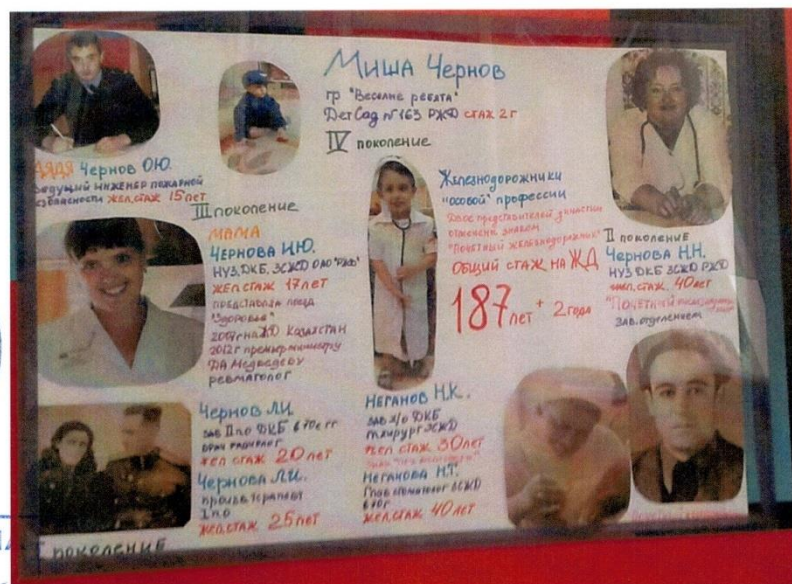 Миша Чернов
гр "Веселые ребята"
ДетСад №163 РЖД стаж 2г
IV поколение
ДЯДЯ Чернов О.Ю.
ведущий инженер пожарной
безопасности жел.стаж 15 лет
III поколение
МАМА
ЧЕРНОВА И.Ю.
НУЗ ДКБ, ЗСЖД ОАО "РЖД"
жел стаж 17лет
представляла поезд
"Здоровье"
на ЖД Казахстан
2012г премьер министру
ДА Медведеву
ревматолог
Железнодорожники
"особой" профессии
Двое представителей династии
отмечены знаком
"Почетный железнодорожник"
Общий стаж на ЖД
187 лет + 2 года
II поколение
Чернова Н.Н.
НУЗ ДКБ ЗСЖД РЖД
жел. стаж. 40 лет
"Почетный
зав. отделением
Чернов Л.И.
зав II п.о ДКБ в 70е гг
врач
жел стаж 20 лет
Чернова Л.И.
терапевт
I п.о
жел.стаж 25 лет
Неганов Н.К.
зав х/о ДКБ
гл.хирург ЗСЖД
жел стаж 30 лет
Неганова Н.Т.
Глав стоматолог ЗСЖД
в 70г
жел.стаж 40 лет
поколение